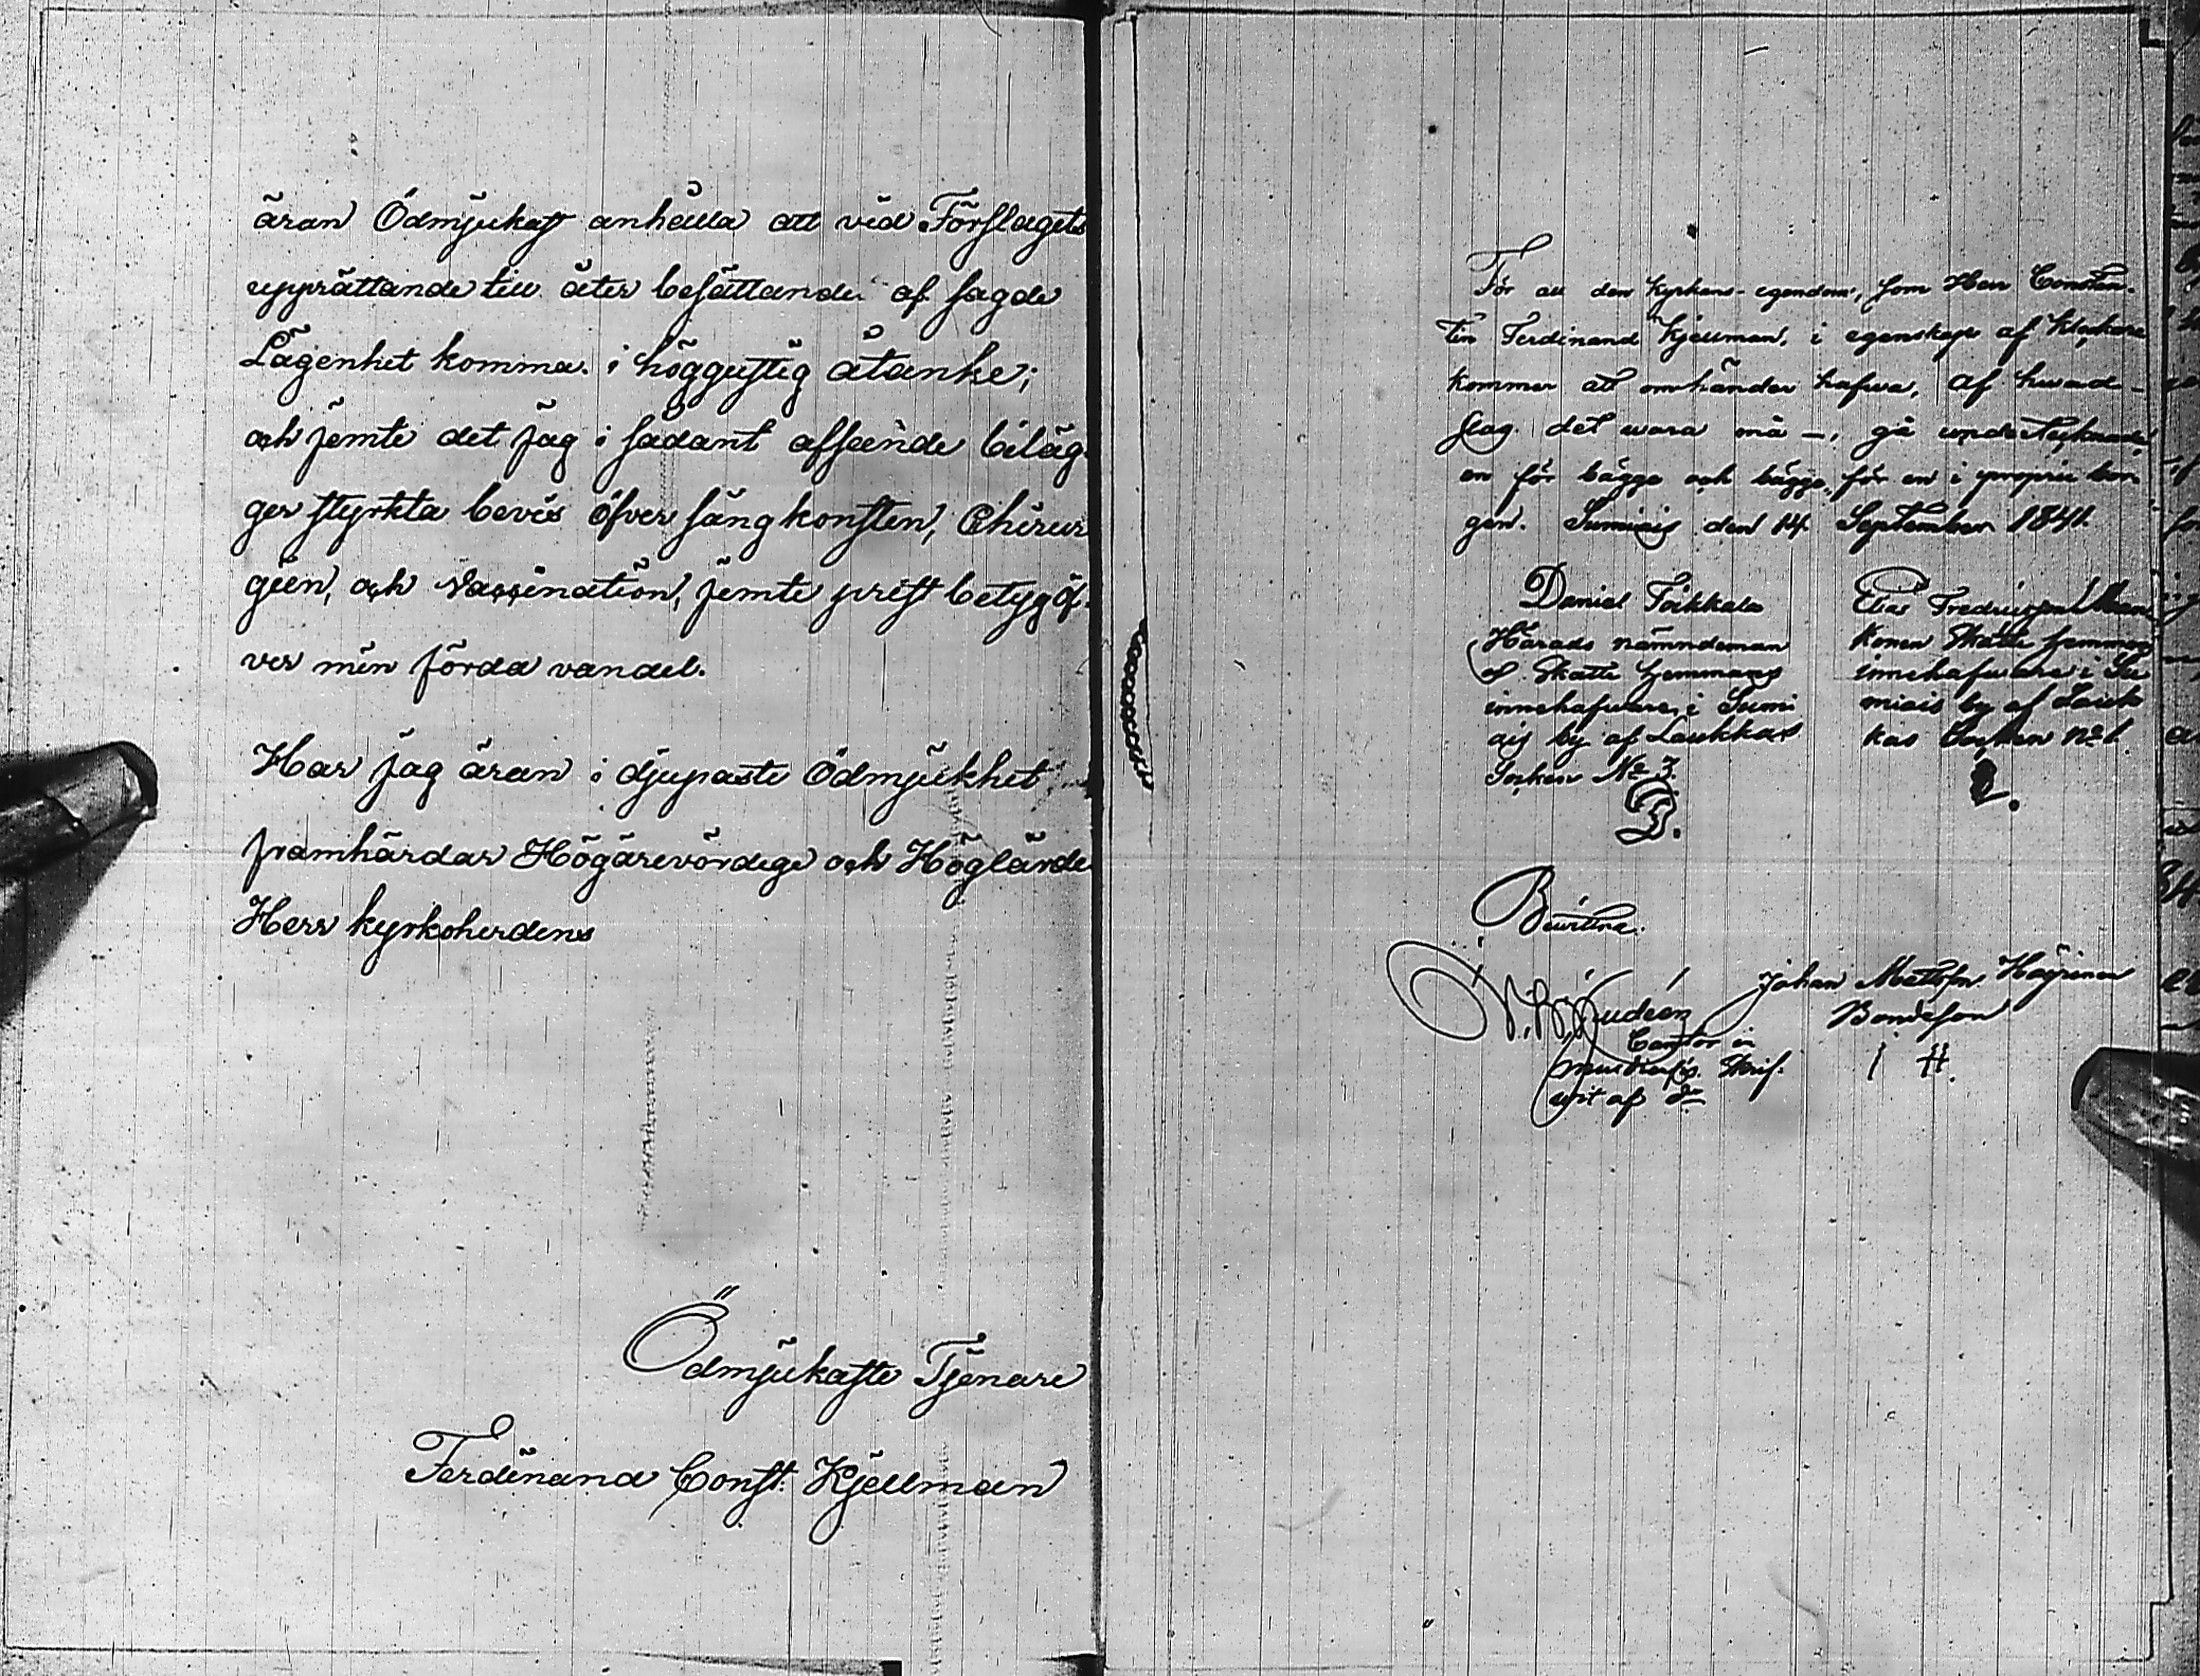 äran Ödmjukast anhålla att vid Förslagets
upprättande till åter besättande af sagde
Lägenhet komma i höggustig åtanke;
och jemte det jag i sådant afseende biläg-
ger styrkta bevis öfver sångkonsten, Chirur
gien, och Vaccination, jemte prest betyg öf-
ver min förda vandel.
Har jag äran i djupaste Ödmjukhet
framhärdar Högärevördige och Höglärde
Herr kyrkoherdens
Ödmjukaste Tjenare
Ferdinand Const. Kjellman
För all den kyrkans egendom, som Herr Constan-
tin Ferdinand Kjellman, i egenskap af Klockare
kommer att omhänder hafva, af hvad
slag det vara må —, gå undertecknade
en för bägge och bägge för en i proprie bor
gen. Sumiais den 14 September 1841.
Daniel Toikkala
Härads nämndeman
et Skatte hemmans
innehafvare i Sumi
ais by af Laukkas
Socken No 3.
D.
Elias Fredricsson
konen Skatte hemmans
innehafvare i Su
miais by af Lauk
kas Socken No 1.
Bewittna.
Cantor
Johan Mattsson Häyrinen
Bondeson
I H.